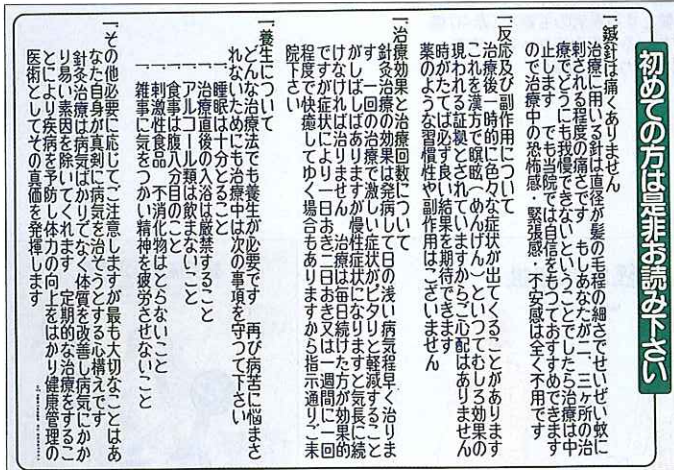 初めての方は是非お読み下さい
「鍼針は痛くありません
治療に用いる針は直径が髪の毛程の細さでせいぜい蚊に
刺される程度の痛さです もしあなたが二、三ヶ所の治
療でどうにも我慢できないということでしたら治療は中
止します でも当院では自信をもつておすすめできます
ので治療中の恐怖感・緊張感・不安感は全く不用です
「反応及び副作用について
治療後一時的に色々な症状が出てくることがあります
これを漢方で瞑眩(めんげん)といつてむしろ効果の
現われる証拠とされていますからご心配はありません
時がたてば必ず良い結果を期待できます
薬のような習慣性や副作用はございません
「治療効果と治療回数について
針灸治療の効果は発病して日の浅い病気程早く治りま
す 一回の治療で激しい症状がピタリと軽減すること
がしばしばありますが慢性症状になりますと気長に続
けなければ治りません 治療は毎日続けた方が効果的
ですが症状により一日おき二日おき又は一週間に一回
程度で快癒してゆく場合もありますから指示通りご来
院下さい
「養生について
どんな治療法でも養生が必要です 再び病苦に悩まさ
れないためにも治療中は次の事項を守つて下さい
「睡眠は十分とること
「治療直後の入浴は厳禁すること
「アルコール類は飲まないこと
「食事は腹八分目のこと
「刺激性食品 不消化物はとらないこと
「雑事に気をつかい精神を疲労させないこと
「その他必要に応じてご注意しますが最も大切なことはあ
なた自身が真剣に病気を治そうとする心構えです
針灸治療は病気ばかりでなく体質を改善し病気にかか
り易い素因を除いてくれます 定期的な治療をするこ
とにより疾病を予防し体力の向上をはかり健康管理の
医術としてその真価を発揮します